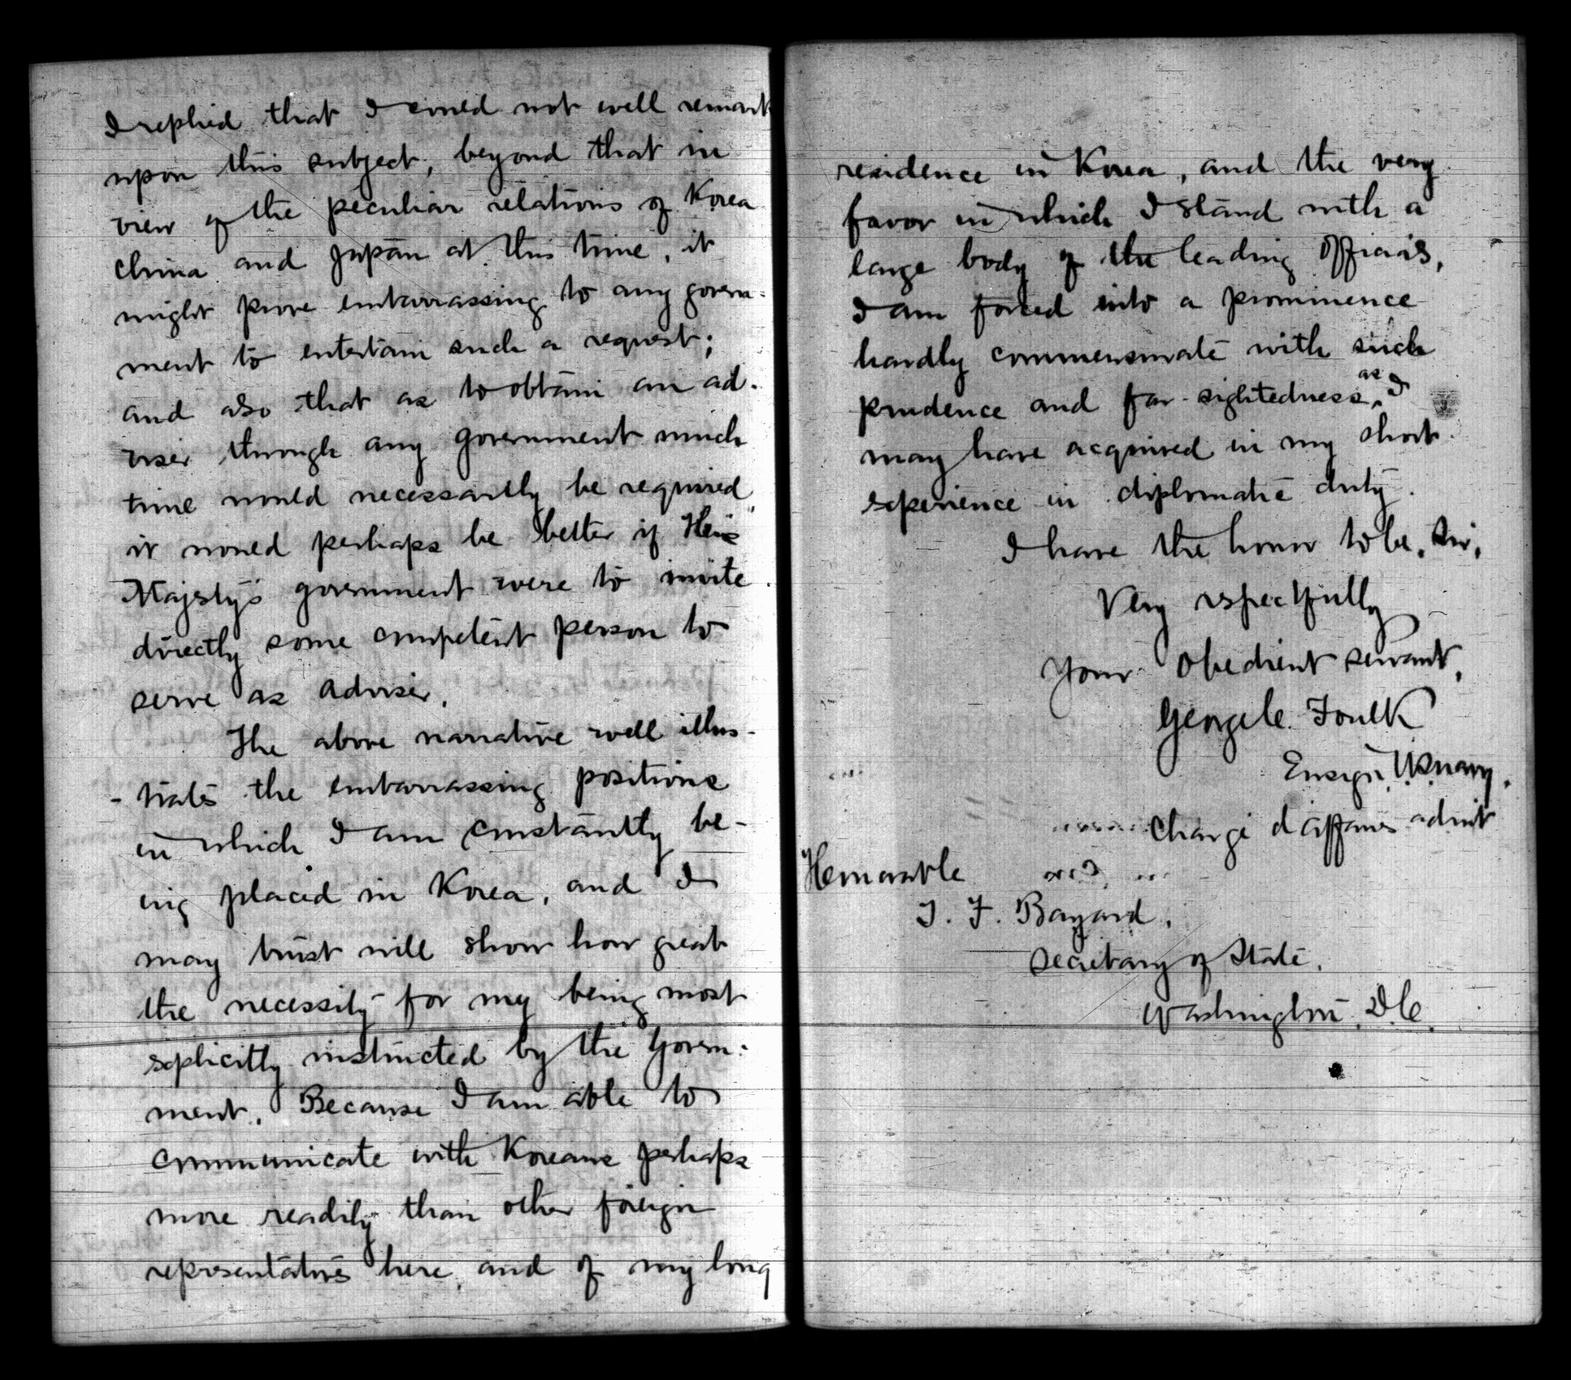 I replied that I could not well remark
upon this subject, beyond that in
view of the peculiar relations of Korea
China and Japan at this time, it
might prove embarrassing to any govern-
ment to entertain such a request;
and also that as to obtain an ad-
viser through any government much
time would necessarily be required
it would perhaps be better if His
Majesty's government were to invite
directly some competent person to
serve as adviser.
The above narrative well illus-
-trates the embarrassing positions
in which I am constantly be-
ing placed in Korea, and I
may trust will show how great
the necessity for my being most
explicitly instructed by the Govern-
ment. Because I am able to
communicate with Koreans perhaps
more readily than other foreign
representatives here, and of my long
residence in Korea, and the very
favor in which I stand with a
large body of the leading officials,
I am forced into a prominence
hardly commensurate with such
prudence and far-sightedness as I
may have acquired in my short
experience in diplomatic duty.
I have the honor to be, Sir,
Very respectfully
Your obedient servant,
George C. Foulk
Ensign, U.S. Navy.
Chargé d'affaires ad int
Honorable
T. F. Bayard,
Secretary of State,
Washington, D.C.